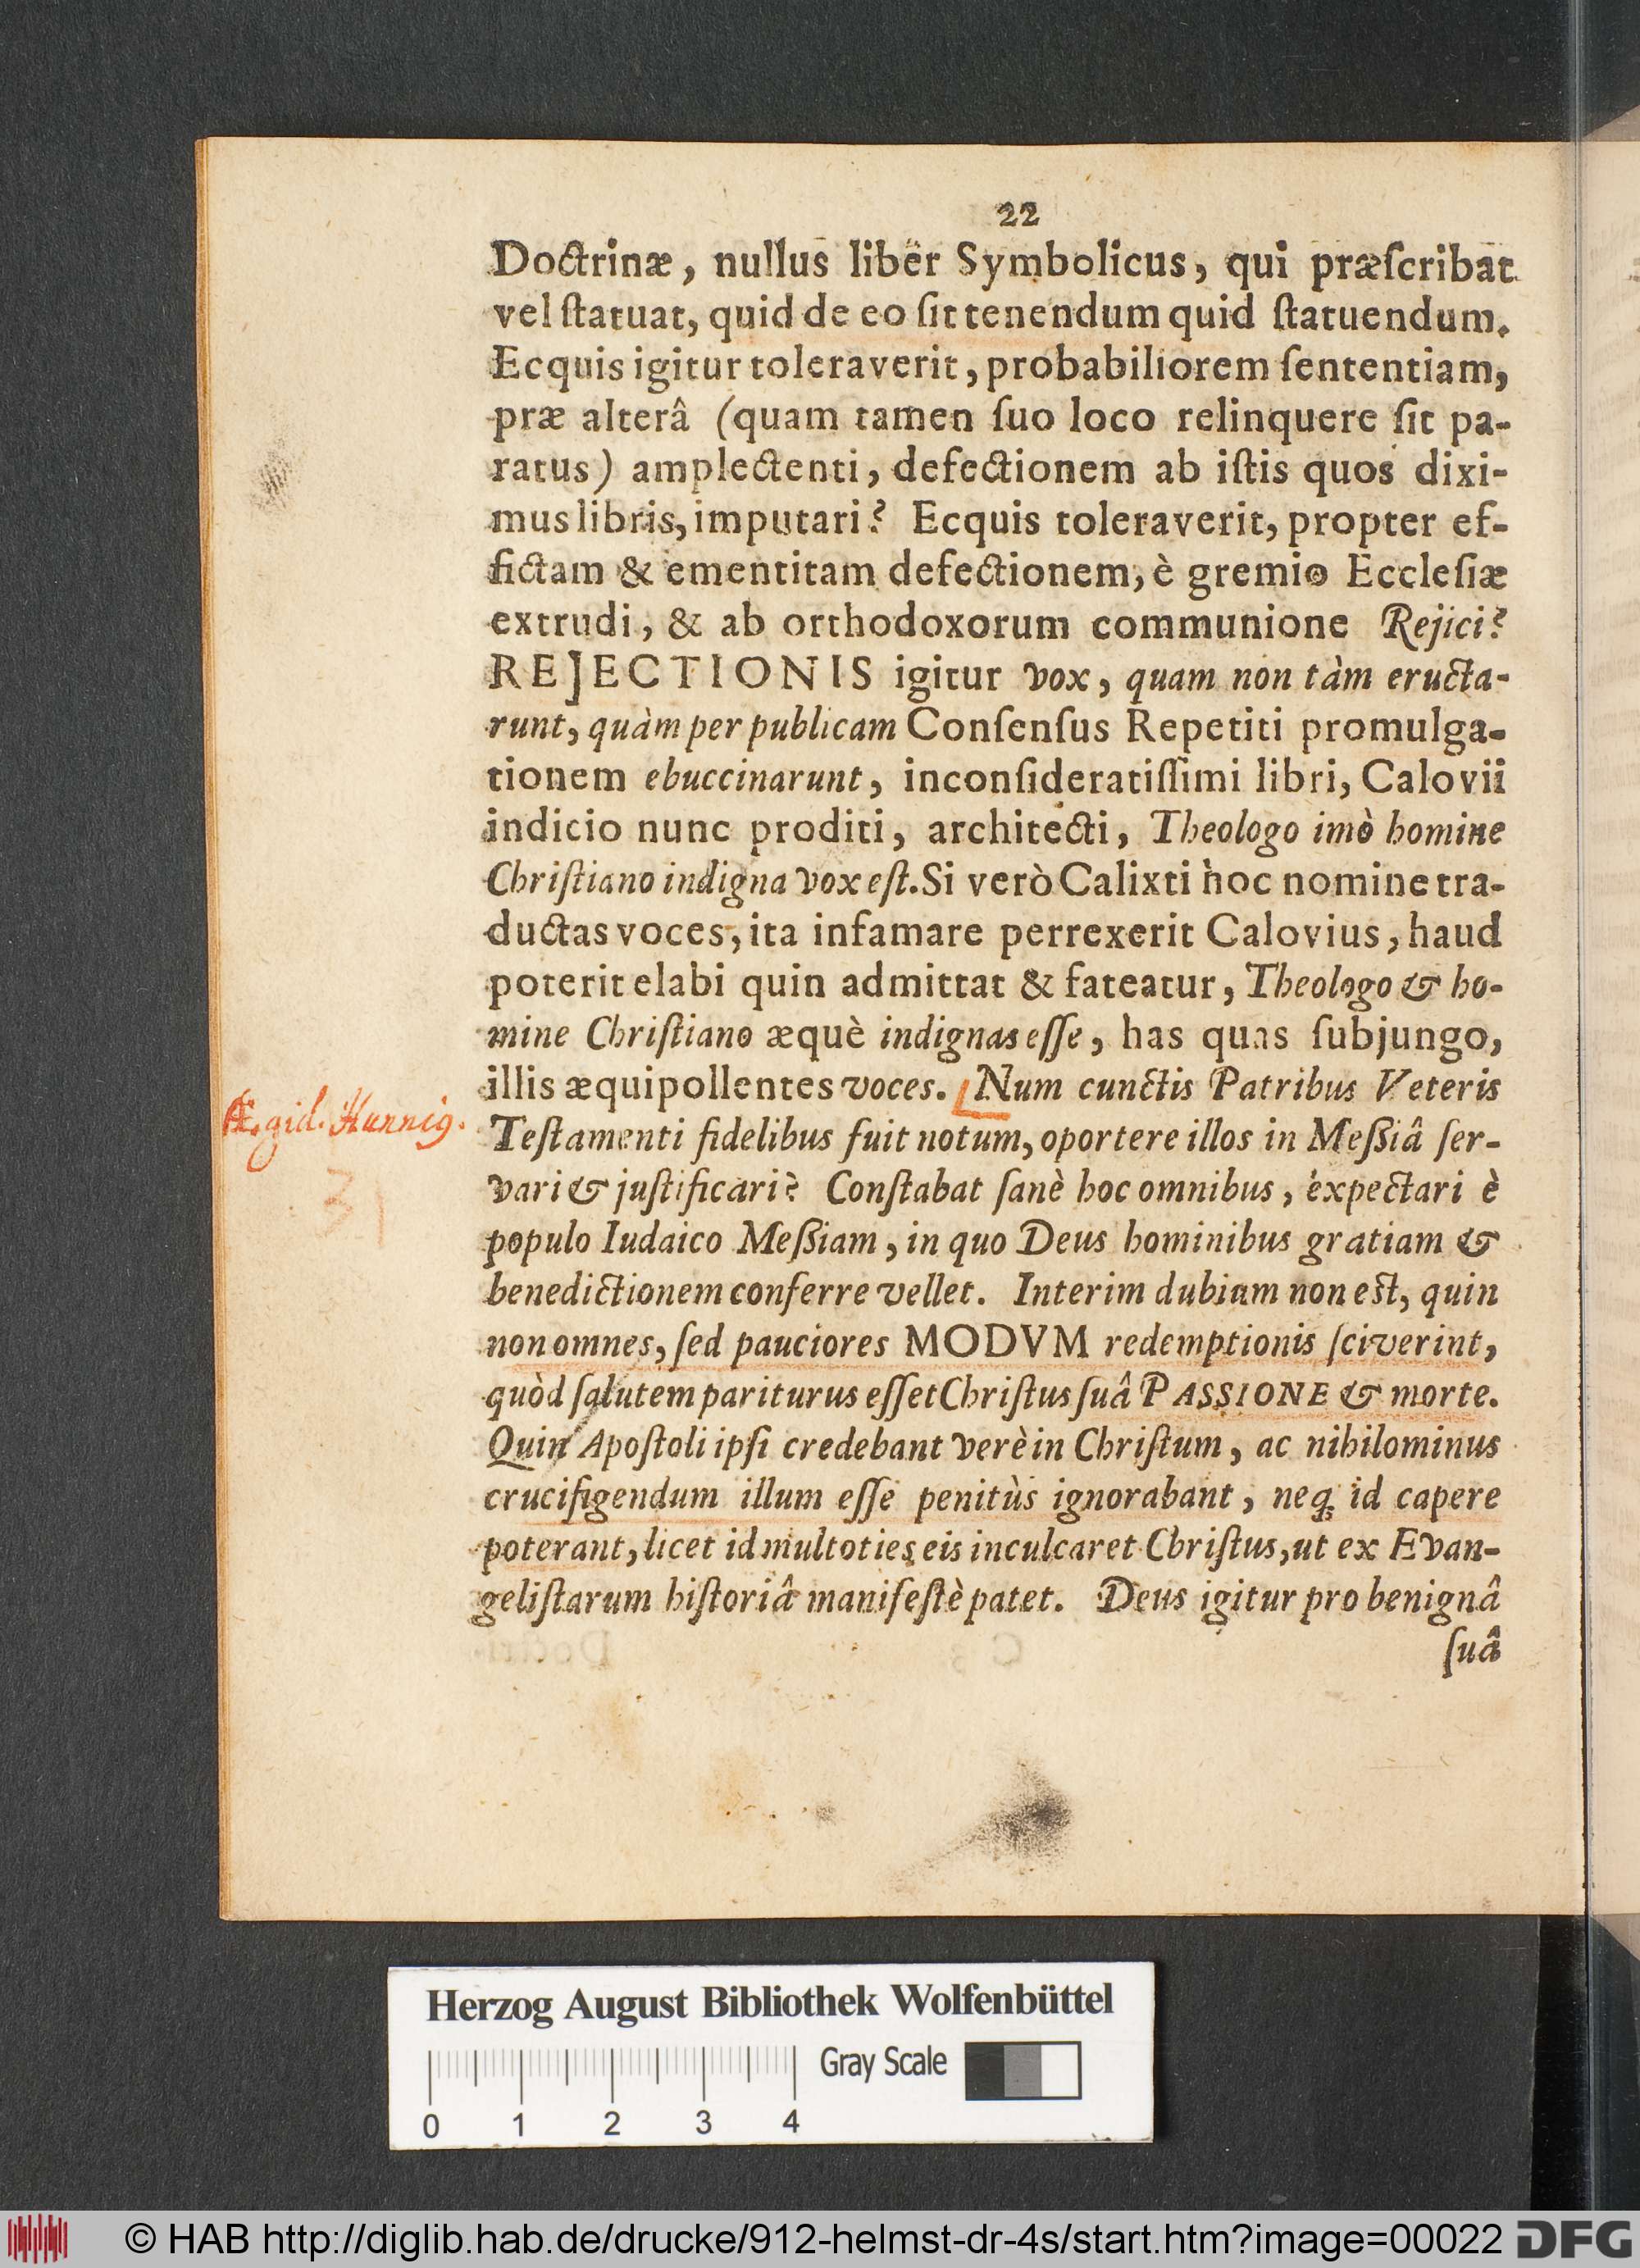 22
Doctrinæ, nullus liber Symbolicus, qui præſcribat
vel ſtatuat, quid de eo ſit tenendum quid ſtatuendum.
Ecquis igitur toleraverit, probabiliorem ſententiam,
præ alterâ (quam tamen ſuo loco relinquere ſit pa-
ratus) amplectenti, defectionem ab iſtis quos dixi-
mus libris, imputari? Ecquis toleraverit, propter ef-
fictam & ementitam defectionem, è gremio Eccleſiæ
extrudi, & ab orthodoxorum communione Rejici?
REJECTIONIS igitur vox, quam non tàm eructa-
runt, quàm per publicam Conſenſus Repetiti promulga-
tionem ebuccinarunt, inconſideratiſſimi libri, Calovii
indicio nunc proditi, architecti, Theologo imò homine
Chriſtiano indigna vox eſt. Si verò Calixti hoc nomine tra-
ductas voces, ita infamare perrexerit Calovius, haud
poterit elabi quin admittat & fateatur, Theologo & ho-
mine Chriſtiano æquè indignas eſſe, has quas ſubjungo,
illis æquipollentes voces. Num cunctis Patribus Veteris
Æ. gid. Hunnig.
Teſtamenti fidelibus fuit notum, oportere illos in Meßiâ ſer-
vari & juſtificari? Conſtabat ſanè hoc omnibus, expectari è
31
populo Iudaico Meßiam, in quo Deus hominibus gratiam &
benedictionem conferre vellet. Interim dubium non eſt, quin
non omnes, ſed pauciores MODVM redemptionis ſciverint,
quòd ſalutem pariturus eſſet Chriſtus ſuâ PASSIONE & morte.
Quin Apoſtoli ipſi credebant verè in Chriſtum, ac nihilominus
crucifigendum illum eſſe penitùs ignorabant, neq; id capere
poterant, licet id multoties eis inculcaret Chriſtus, ut ex Evan-
geliſtarum hiſtoriâ manifeſtè patet. Deus igitur pro benignâ
ſuâ
Herzog August Bibliothek Wolfenbüttel
Gray Scale
0 1 2 3 4
© HAB http://diglib.hab.de/drucke/912-helmst-dr-4s/start.htm?image=00022 DFG